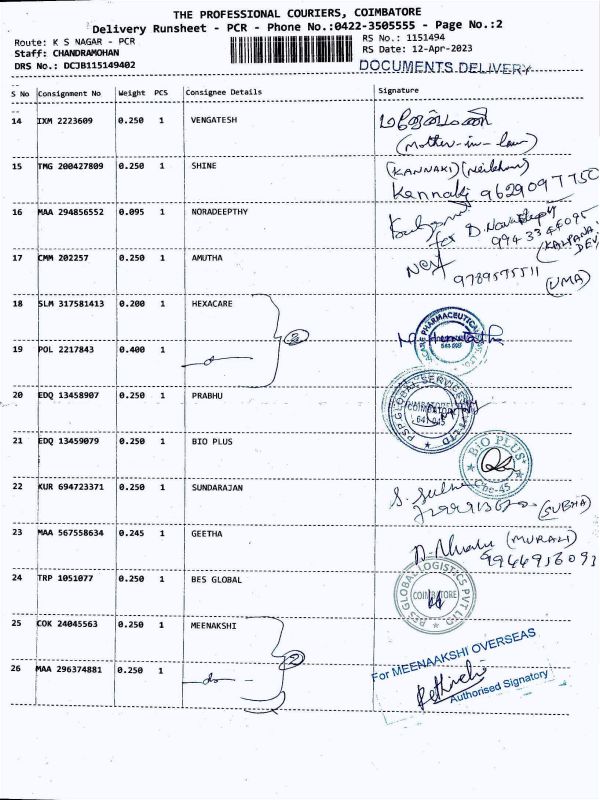 THE PROFESSIONAL COURIERS, COIMBATORE
Delivery Runsheet - PCR - Phone No.:0422-3505555 - Page No.:2
Route: K S NAGAR - PCR RS No.: 1151494
Staff: CHANDRAMOHAN RS Date: 12-Apr-2023
DRS No.: DCJB115149402 DOCUMENTS DELIVERY
S No Consignment No Weight PCS Consignee Details Signature
14 IXM 2223609 0.250 1 VENGATESH
(Mother-in-law)
15 TMG 200427809 0.250 1 SHINE (KANNAKI)
Kannaki 9629097750
16 MAA 294856552 0.095 1 NORADEEPTHY
for D.
9943344095
(KALPANA DEVI)
17 CMM 202257 0.250 1 AMUTHA
9789575511
(UMA)
18 SLM 317581413 0.200 1 HEXACARE
2
PHARMACEUTICAL
19 POL 2217843 0.400 1
20 EDQ 13458907 0.250 1 PRABHU
PSP GLOBAL SERVICES PVT LTD
COIMBATORE
641 045
21 EDQ 13459079 0.250 1 BIO PLUS
BIO PLUS
Cbe-45
22 KUR 694723371 0.250 1 SUNDARAJAN
(SUBHA)
23 MAA 567558634 0.245 1 GEETHA
(MURALI)
9944956093
24 TRP 1051077 0.250 1 BES GLOBAL
BES GLOBAL LOGISTICS PVT LTD
COIMBATORE
25 COK 24045563 0.250 1 MEENAKSHI
2
For MEENAAKSHI OVERSEAS
26 MAA 296374881 0.250 1
Authorised Signatory